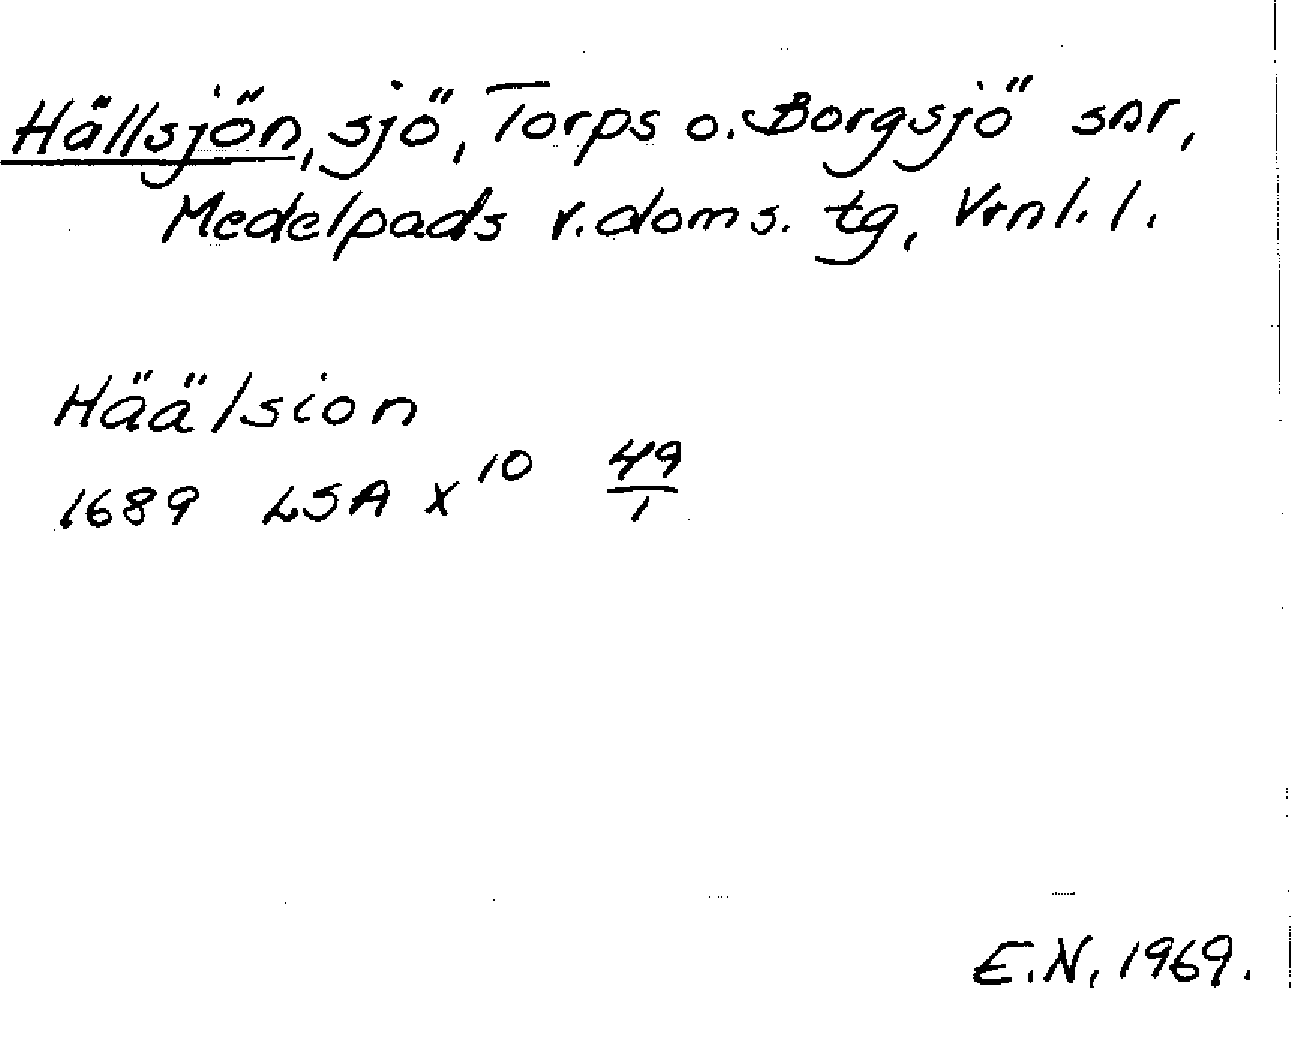 Hällsjön, sjö, Torps o. Borgsjö snr,
Medelpads v. doms. tg, Vrnl. l.
Häälsion
1689 LSA X 10 49/1
E.N, 1969.